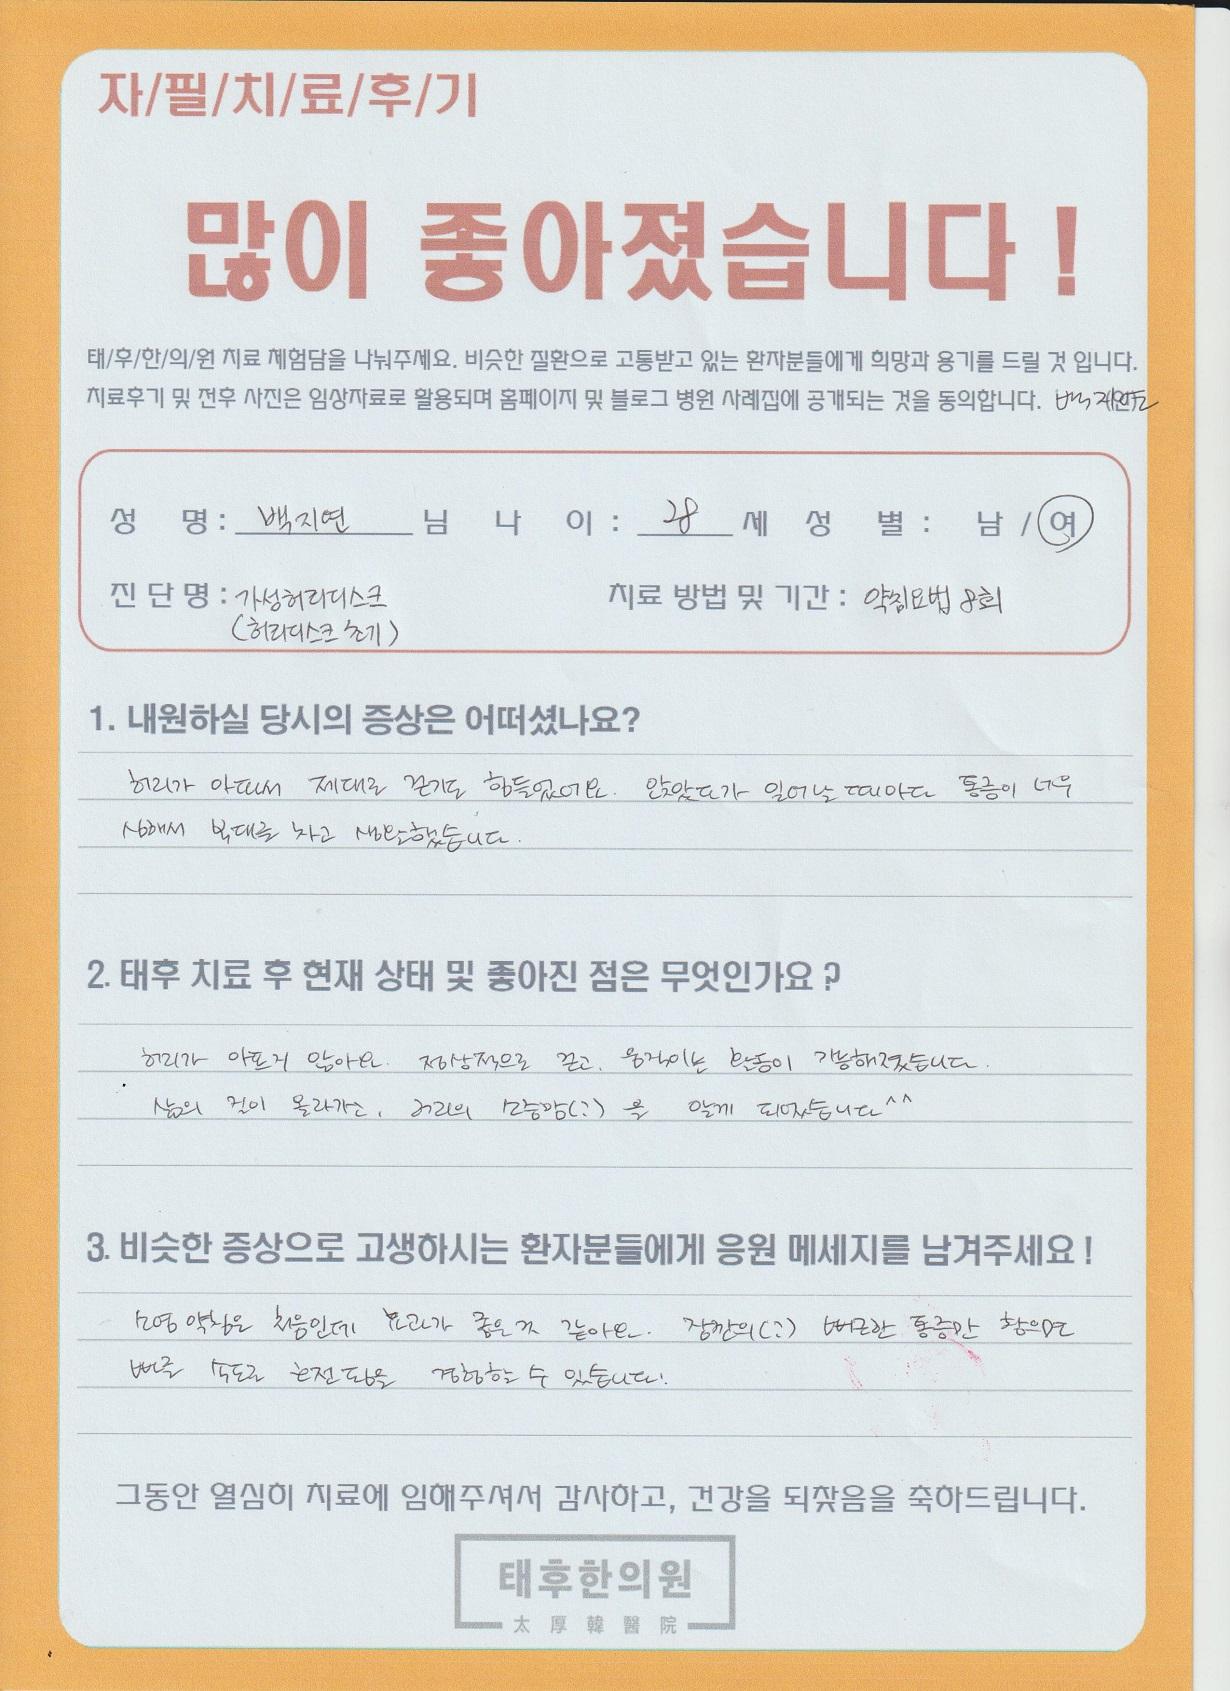 자/필/치/료/후/기
많이 좋아졌습니다 !
태/후/한/의/원 치료 체험담을 나눠주세요. 비슷한 질환으로 고통받고 있는 환자분들에게 희망과 용기를 드릴 것 입니다.
치료후기 및 전후 사진은 임상자료로 활용되며 홈페이지 및 블로그 병원 사례집에 공개되는 것을 동의합니다.
성 명 : 백지연 님 나 이 : 28 세 성 별 : 남 / 여
진 단 명 : 가성허리디스크 치료 방법 및 기간 : 약침요법 8회
(허리디스크 초기)
1. 내원하실 당시의 증상은 어떠셨나요?
허리가 아파서 제대로 걷기도 힘들었어요. 앉았다가 일어날 때마다 통증이 너무
심해서 복대를 차고 생활했습니다.
2. 태후 치료 후 현재 상태 및 좋아진 점은 무엇인가요 ?
허리가 아프지 않아요. 정상적으로 걷고, 움직이는 활동이 가능해졌습니다.
삶의 질이 올라가고, 허리의 소중함(?)을 알게 되었습니다^^
3. 비슷한 증상으로 고생하시는 환자분들에게 응원 메세지를 남겨주세요 !
약침은 처음인데 효과가 좋은것 같아요. 잠깐의(?) 뻐근한 통증만 참으면
빠른 속도로 호전됨을 경험하는 수 있습니다!
그동안 열심히 치료에 임해주셔서 감사하고, 건강을 되찾음을 축하드립니다.
태후한의원
太厚韓醫院